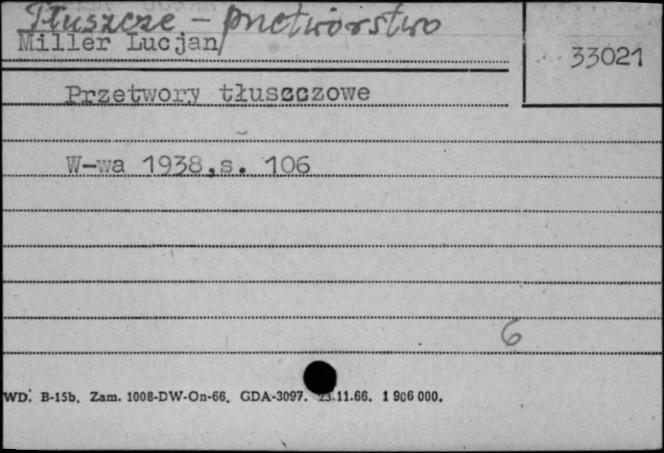 Tłuszcze - przetwórstwo
Miller Lucjan
33021
Przetwory tłuszczowe
W-wa 1938,s. 106
6
WD. B-15b. Zam. 1008-DW-On-66. GDA-3097. 23.11.66. 1 906 000.